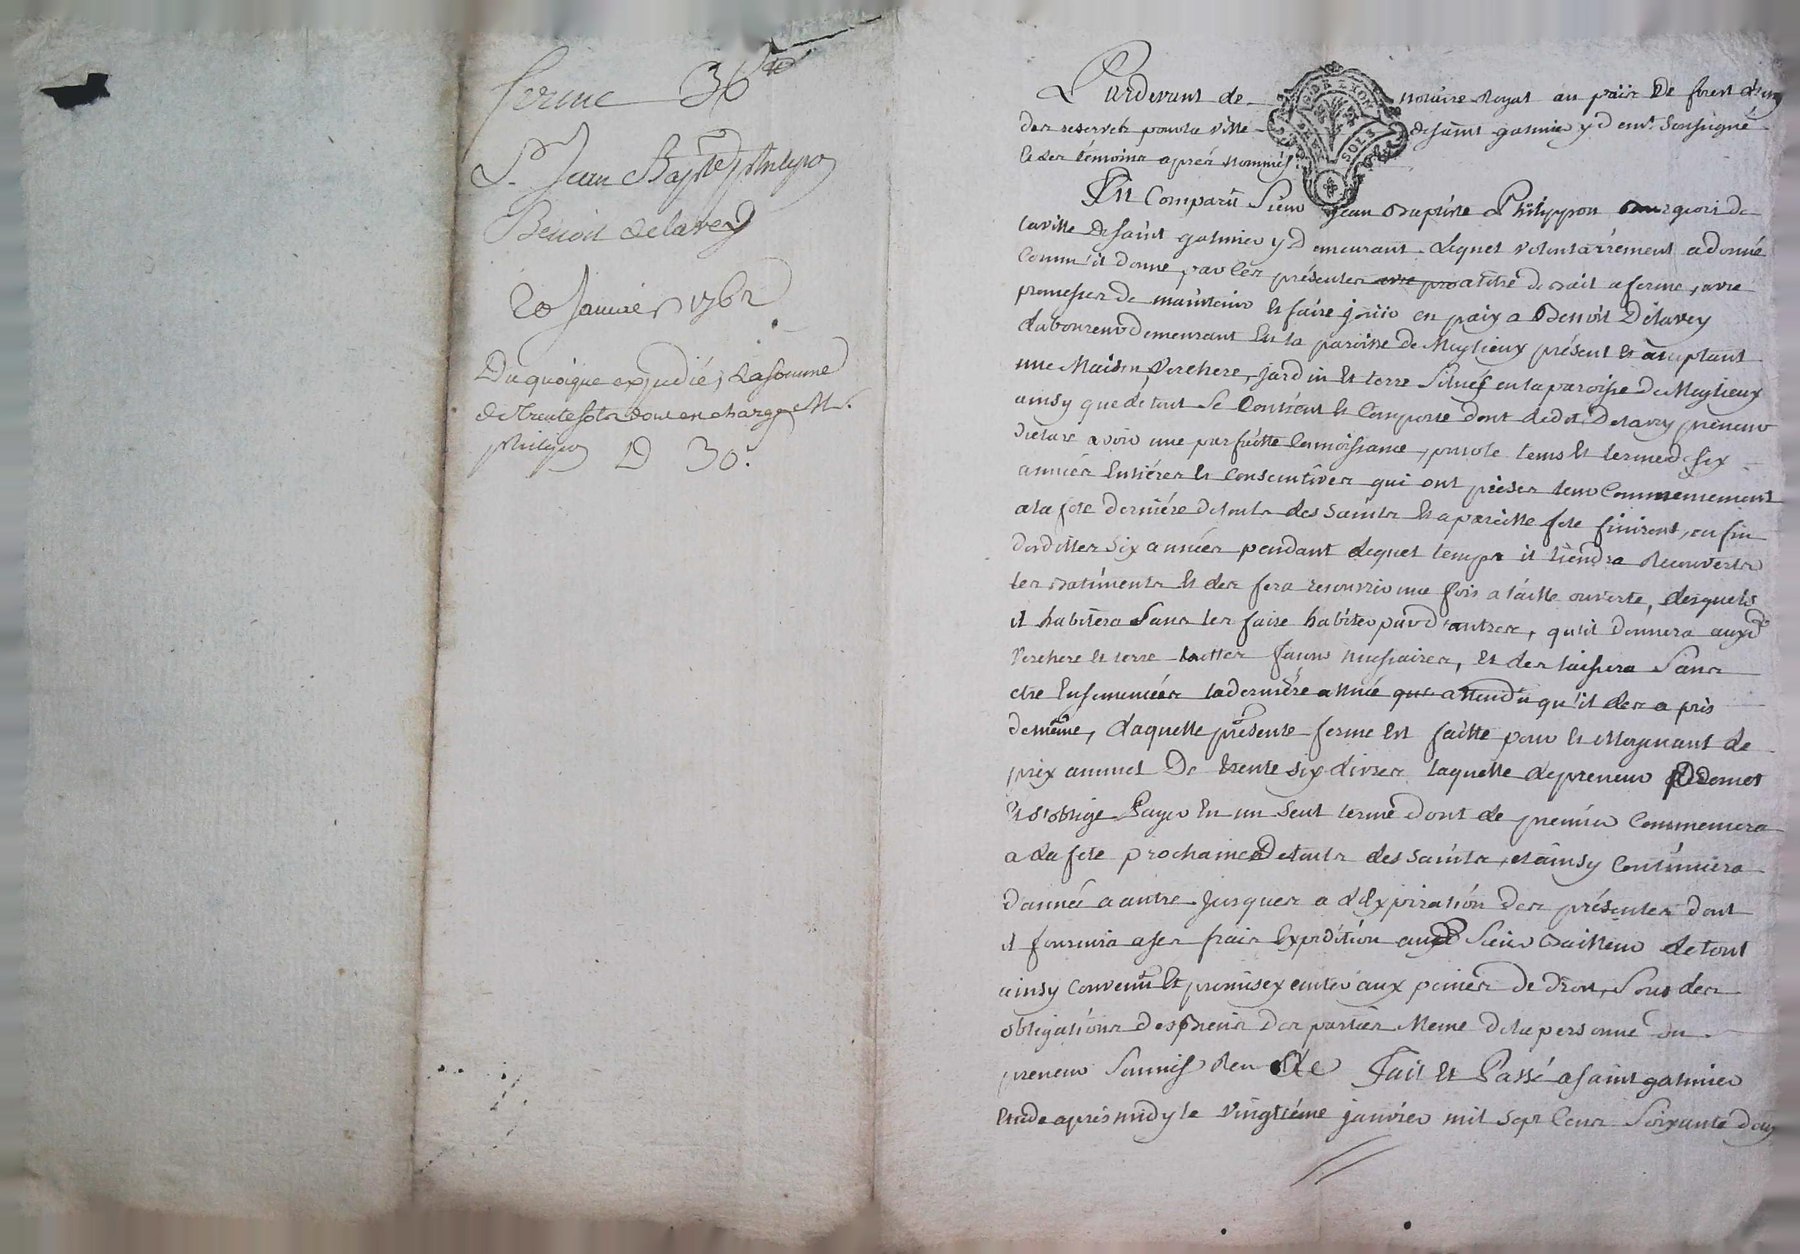 ferme 36 ₶
S.r Jean Bapte philypon
Benoit delavey
20 Janvier 1762
Du quoique expedié, la somme
de trente sols doue en charge M.r
philipon D 30.s
GENERALITE DE LYON
DEUX SOLS
Pardevant le notaire Royal au païs de forest l'un
des reservés pour la ville de saint galmier y demt. soussigné
et les témoins aprés nommés.
Fut Comparu Sieur Jean Baptiste Philyppon Bourgeois de
la ville de saint galmier y demeurant lequel volontairement a donné
comm'il donne par les présentes avec pro a titre de bail a ferme, avec
promesses de maintenir et faire joüir en paix a Benoit Delavey
laboureur demeurant en la paroisse de Meylieux présent et acceptant
une Maison Verchere, Jardin et terre Situés en la paroisse de Meylieux
ainsy que le tout se Contient et Comporte dont ledit Delavey preneur
declare avoir une parfaitte Connoissance, pour le tems et terme de six
années Entiéres et Consecutives qui ont prises leur Commencement
a la fete derniére de touts les saints et a pareille fete finiront, en fin
desdittes six années pendant lequel temps il tiendra recouverts
les batiments et les fera recouvrir une fois a taille ouverte, lesquels
il habitera Sans les faire habiter par d'autres, qu'il donnera auxd.
Verchere et terre touttes facons necessaires, et les laissera Sans
etre Ensemencées la derniére année que attendu qu'il les a pris
de même, laquelle présente ferme Est faitte pour et Moyenant le
prix annuel De trente six livres laquelle le preneur promet
Et s'oblige Payer En un seul terme dont le premier Commencera
a la fete prochaine De touts les saints, et ainsy Continuera
d'année a autre Jusques a l'Expiration des présentes dont
il fournira a ses frais Expedition aud. Sieur Bailleur le tout
ainsy convenu Et promis executer aux peines de Droit, Sous les
obligations des biens des parties Meme de la personne du
preneur Soumis Ren &c Fait Et Passé a saint galmier
Etude aprés midy le Vingtiéme janvier mil sept Cent Soixante deux